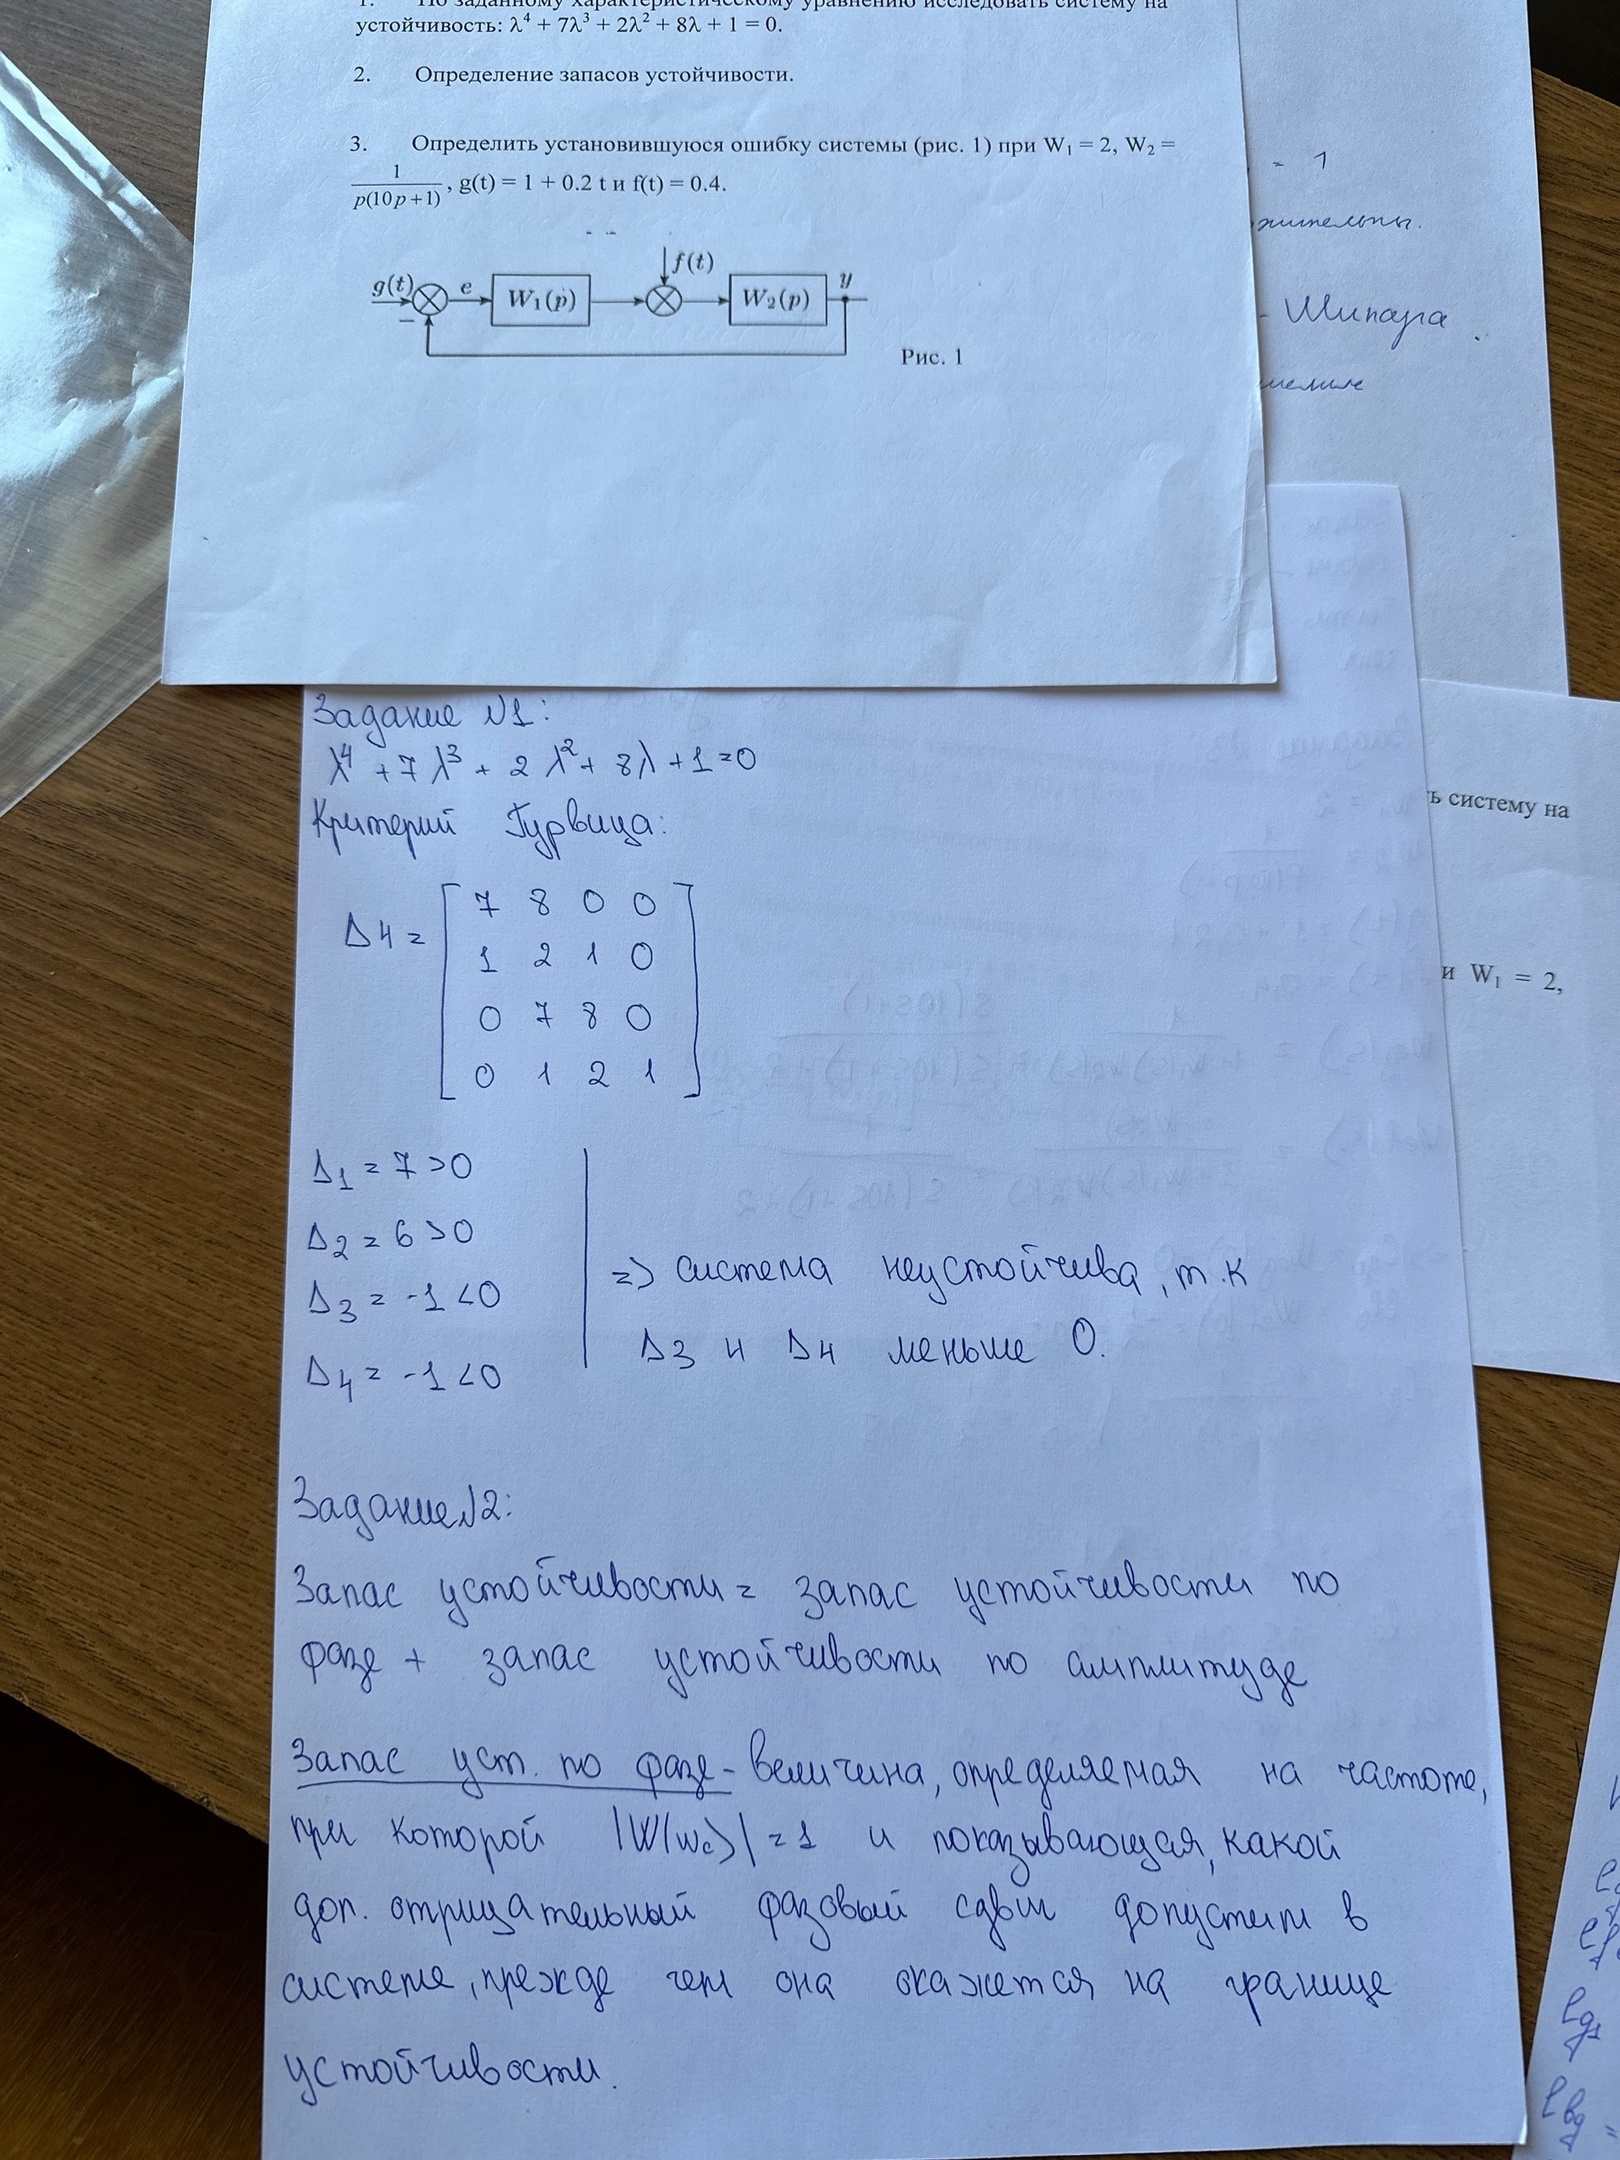 1. По заданному характеристическому уравнению исследовать систему на
устойчивость: λ⁴ + 7λ³ + 2λ² + 8λ + 1 = 0.
2. Определение запасов устойчивости.
3. Определить установившуюся ошибку системы (рис. 1) при W₁ = 2, W₂ =
1
p(10p+1)
, g(t) = 1 + 0.2 t и f(t) = 0.4.
g(t) e W₁(p) f(t) W₂(p) y
−
Рис. 1
= 1
- Шипара
ь систему на
и W₁ = 2,
Задание №1:
λ⁴ + 7λ³ + 2λ² + 8λ + 1 = 0
Критерий Гурвица:
Δ4 =
7 8 0 0
1 2 1 0
0 7 8 0
0 1 2 1
Δ1 = 7 >0
Δ2 = 6 >0
Δ3 = -1 <0
Δ4 = -1 <0
=> система неустойчива, т.к
Δ3 и Δ4 меньше 0.
Задание №2:
Запас устойчивости = запас устойчивости по
фазе + запас устойчивости по амплитуде
Запас уст. по фазе - величина, определяемая на частоте,
при которой |W(wc)| = 1 и показывающая, какой
доп. отрицательный фазовый сдвиг допустим в
системе, прежде чем она окажется на границе
устойчивости.